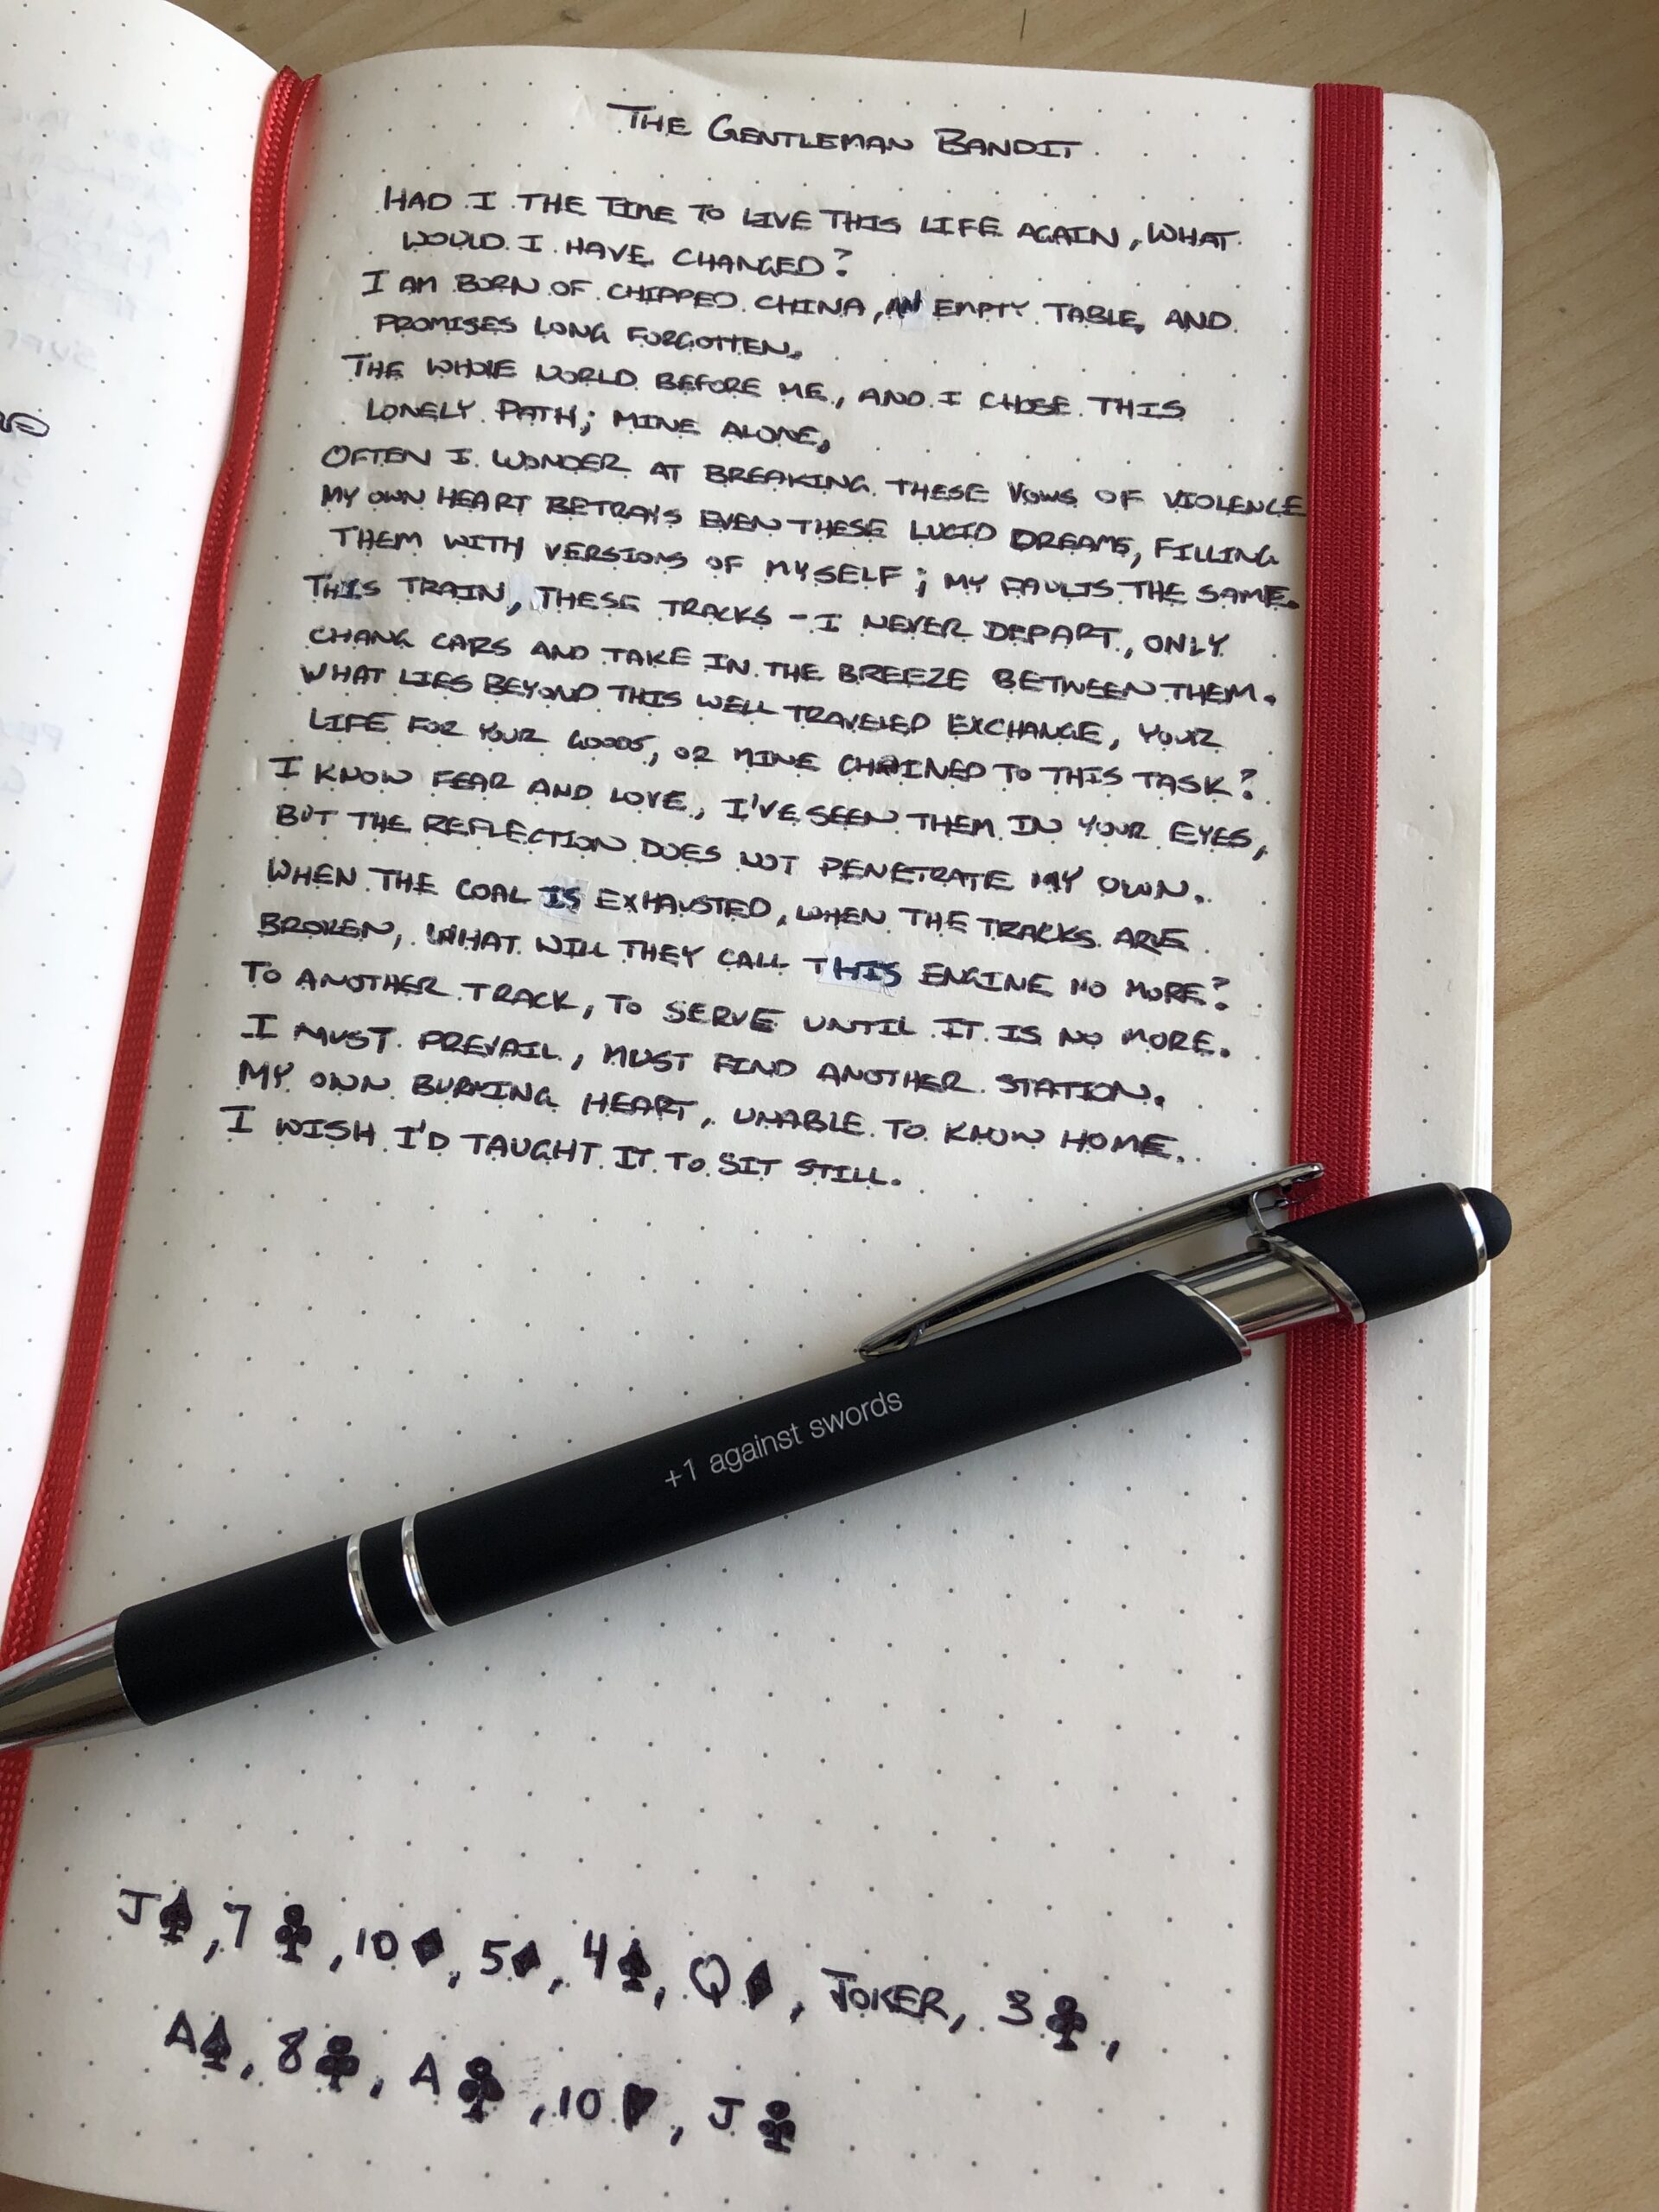 THE GENTLEMAN BANDIT
HAD I THE TIME TO LIVE THIS LIFE AGAIN, WHAT
WOULD I HAVE CHANGED?
I AM BORN OF CHIPPED CHINA, AN EMPTY TABLE, AND
PROMISES LONG FORGOTTEN.
THE WHOLE WORLD BEFORE ME, AND I CHOSE THIS
LONELY PATH; MINE ALONE,
OFTEN I WONDER AT BREAKING THESE VOWS OF VIOLENCE
MY OWN HEART BETRAYS EVEN THESE LUCID DREAMS, FILLING
THEM WITH VERSIONS OF MYSELF; MY FAULTS THE SAME.
THIS TRAIN, THESE TRACKS - I NEVER DEPART, ONLY
CHANG CARS AND TAKE IN THE BREEZE BETWEEN THEM.
WHAT LIES BEYOND THIS WELL TRAVELED EXCHANGE, YOUR
LIFE FOR YOUR GOODS, OR MINE CHAINED TO THIS TASK?
I KNOW FEAR AND LOVE, I'VE SEEN THEM IN YOUR EYES,
BUT THE REFLECTION DOES NOT PENETRATE MY OWN.
WHEN THE COAL IS EXHAUSTED, WHEN THE TRACKS ARE
BROKEN, WHAT WILL THEY CALL THIS ENGINE NO MORE?
TO ANOTHER TRACK, TO SERVE UNTIL IT IS NO MORE.
I MUST PREVAIL, MUST FIND ANOTHER STATION.
MY OWN BURNING HEART, UNABLE TO KNOW HOME.
I WISH I'D TAUGHT IT TO SIT STILL.
+1 against swords
J♠, 7♣, 10♦, 5♦, 4♠, Q♦, JOKER, 3♣,
A♠, 8♣, A♣, 10♥, J♣